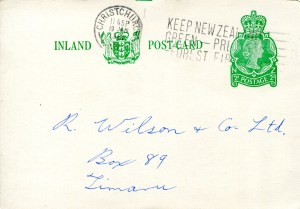 CHRISTCHURCH
KEEP NEW ZEA
GREEN PRE
FOREST FI
INLAND POST CARD
POSTAGE
R. Wilson & Co Ltd.
Box 89
Timaru